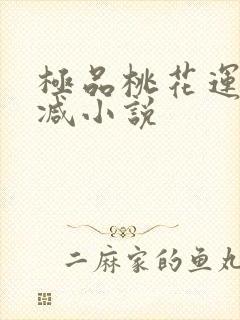 極品桃花運
减小説
二麻家的鱼丸